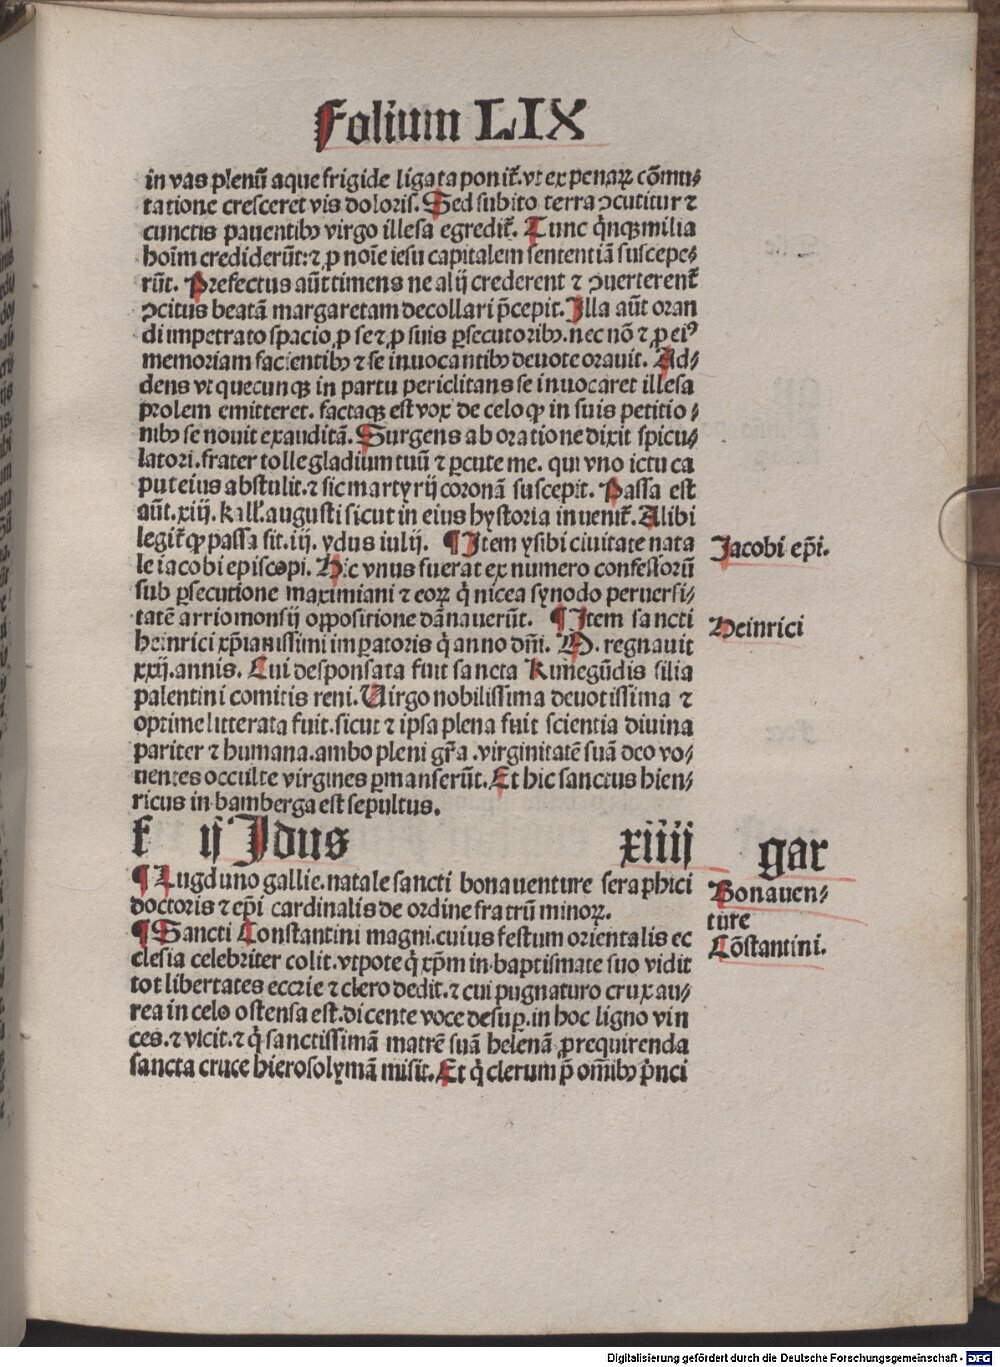 Folium LIX
in vas plenū aque frigide ligata ponit̄. vt ex penaꝝ cōmu⸗
tatione cresceret vis doloris. Sed subito terra ↄcutitur ⁊
cunctis pauentibꝰ virgo illesa egredit̄. Tunc q̇nqꝫ milia
hoīm crediderūt: ⁊ ꝓ noīe iesu capitalem sententiā suscepe⸗
rūt. Prefectus aūt timens ne alij crederent ⁊ ↄuerterent̄
ↄcitus beatā margaretam decollari p̄cepit. Illa aūt oran
di impetrato spacio ꝓ se ⁊ ꝓ suis ꝑsecutoribꝰ. nec nō ⁊ ꝓ eiꝰ
memoriam facientibꝰ ⁊ se inuocantibꝰ deuote orauit. Ad⸗
dens vt quecunqꝫ in partu periclitans se inuocaret illesa
prolem emitteret. factaqꝫ est vox de celo ꝙ in suis petitio⸗
nibꝰ se nouit exauditā. Surgens ab oratione dixit spicu⸗
latori. frater tolle gladium tuū ⁊ ꝑcute me. qui vno ictu ca
put eius abstulit. ⁊ sic martyrij coronā suscepit. Passa est
aūt. xiij. kall̄. augusti sicut in eius hystoria inuenit̄. Alibi
legit̄ ꝙ passa sit. iij. ydus iulij. ¶ Item ysibi ciuitate nata
le iacobi episcopi. Hic vnus fuerat ex numero confessorū
sub ꝑsecutione maximiani ⁊ eoꝝ q̇ nicea synodo peruersi⸗
tatē arriomonsij oppositione dānauerūt. ¶ Item sancti
heinrici xp̄ianissimi imꝑatoris q̇ anno dn̄i. M. regnauit
xxij. annis. Cui desponsata fuit sancta Kunegūdis filia
palentini comitis reni. Virgo nobilissima deuotissima ⁊
optime litterata fuit. sicut ⁊ ipsa plena fuit scientia diuina
pariter ⁊ humana. ambo pleni gr̄a . virginitatē suā deo vo⸗
uentes occulte virgines ꝑmanserūt. Et hic sanctus hien⸗
ricus in bamberga est sepultus.
Jacobi ep̄i.
Heinrici
f ij Idus xiiij gar
¶ Lugduno gallie. natale sancti bonauenture seraphici
doctoris ⁊ ep̄i cardinalis de ordine fratrū minoꝝ.
¶ Sancti Constantini magni. cuius festum orientalis ec
clesia celebriter colit. vtpote q̇ xp̄m in baptismate suo vidit
tot libertates eccrie ⁊ clero dedit. ⁊ cui pugnaturo crux au⸗
rea in celo ostensa est. dicente voce desuꝑ. in hoc ligno vin
ces. ⁊ vicit. ⁊ q̇ sanctissimā matrē suā helenā ꝓ requirenda
sancta cruce hierosolymā misit. Et q̇ clerum p̄ om̄ibꝰ p̄nci
Bonauen⸗
ture
Cōstantini.
Digitalisierung gefördert durch die Deutsche Forschungsgemeinschaft - DFG